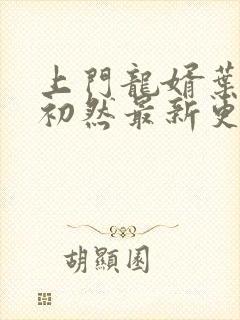 上門龍婿葉
初然最新更
胡顯園